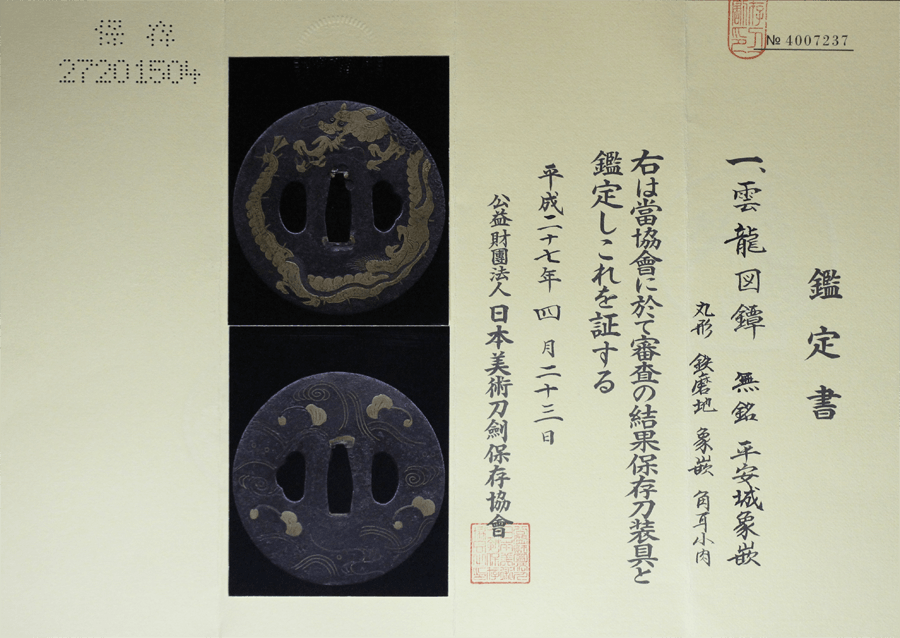 № 4007237
鑑定書
一、雲龍図鐔 無銘 平安城象嵌
丸形 鉄磨地 象嵌 角耳小肉
右は當協會に於て審査の結果保存刀装具と
鑑定しこれを証する
平成二十七年 四月二十三日
公益財團法人 日本美術刀劍保存協會
保存
27201504